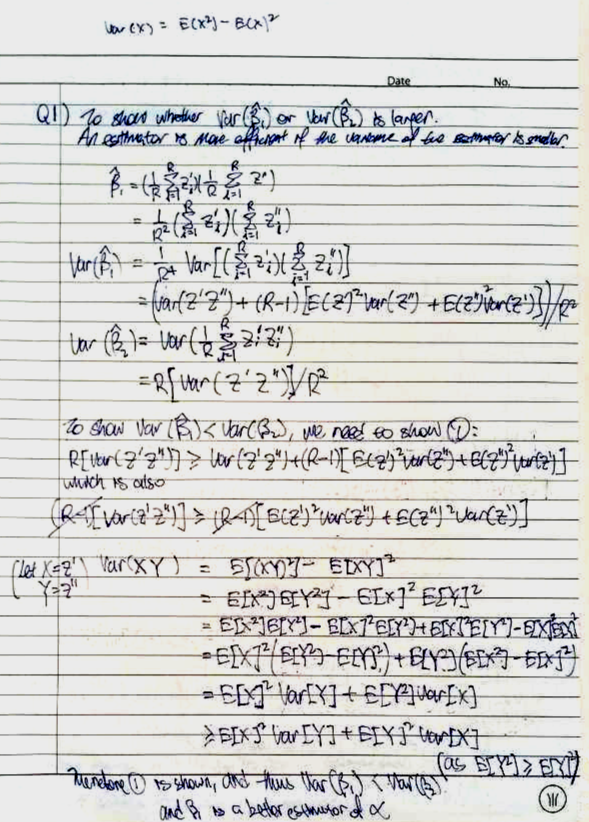 Var(X) = E(X²) - E(X)²
Date No.
Q1) To show whether Var(β̂₁) or Var(β̂₂) is larger.
An estimator is more efficient if the variance of the estimator is smaller.
β̂₁ = (1/R Σ_{i=1}^{R} Z'ᵢ)(1/R Σ_{i=1}^{R} Z'')
= 1/R² (Σ_{i=1}^{R} Z'ᵢ)(Σ_{i=1}^{R} Z''ᵢ)
Var(β̂₁) = 1/R⁴ Var[(Σ_{i=1}^{R} Z'ᵢ)(Σ_{i=1}^{R} Z''ᵢ)]
= (Var(Z'Z'') + (R-1)[E(Z')²Var(Z'') + E(Z'')²Var(Z')])/R²
Var(β̂₂) = Var(1/R Σ_{i=1}^{R} Z'ᵢZ''ᵢ)
= R[Var(Z'Z'')]/R²
To show Var(β̂₁) < Var(β̂₂), we need to show ①:
R[Var(Z'Z'')] ≥ Var(Z'Z'') + (R-1)[E(Z')²Var(Z'') + E(Z'')²Var(Z')]
which is also
(R-1)[Var(Z'Z'')] ≥ (R-1)[E(Z')²Var(Z'') + E(Z'')²Var(Z')]
(Let X=Z' Var(XY) = E[(XY)²] - E[XY]²
Y=Z''
= E[X²]E[Y²] - E[X]²E[Y]²
= E[X²]E[Y²] - E[X]²E[Y²] + E[X]²E[Y²] - E[X]²E[Y]²
= E[X]²(E[Y²] - E[Y]²) + E[Y²](E[X²] - E[X]²)
= E[X]² Var[Y] + E[Y²] Var[X]
≥ E[X]² Var[Y] + E[Y]² Var[X]
(as E[Y²] ≥ E[Y]²)
Therefore ① is shown, and thus Var(β̂₁) < Var(β̂₂)
and β̂₁ is a better estimator of α